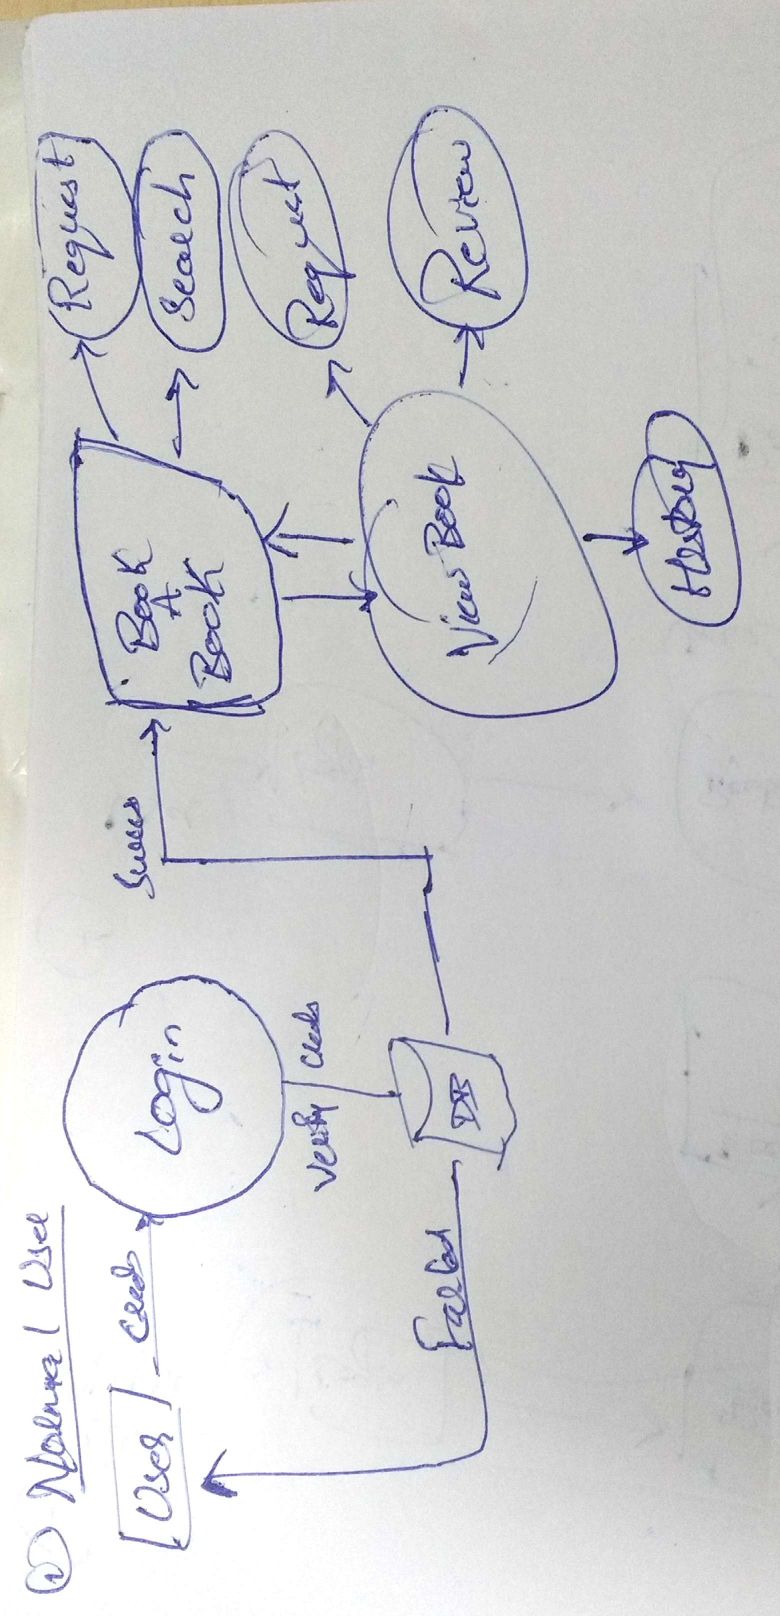 1 Normal User
User
Creds
Login
Verify Creds
DB
Failed
Success
Book
A
Book
Request
Search
View Book
Request
Review
History